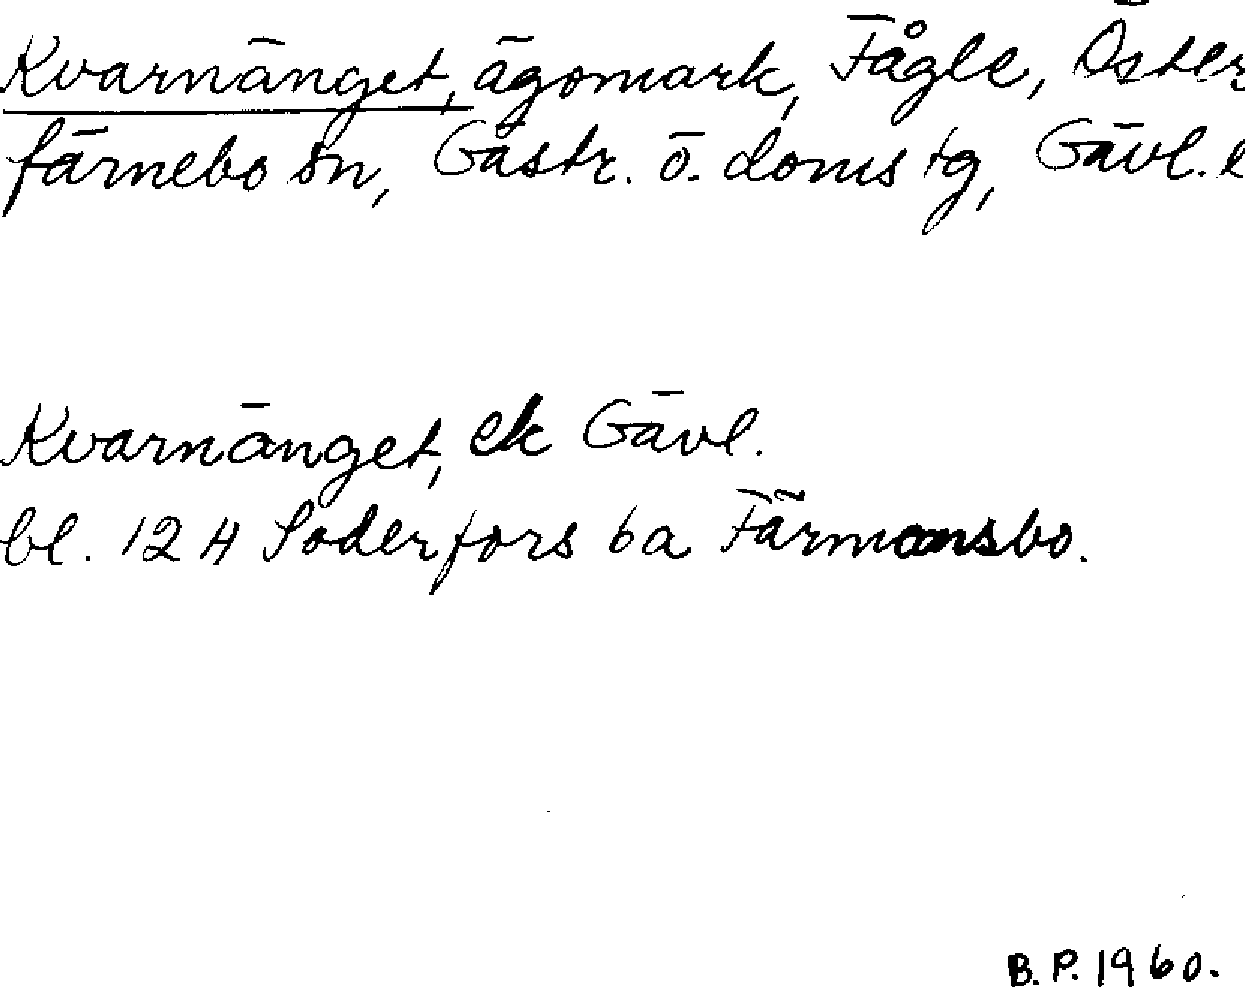 Kvarnänget, ägomark, Fågle, Öster
färnebo sn, Gästr. ö. doms tg, Gävl. l
Kvarnänget, ek Gävl.
bl. 12 H Söderfors 6a Färmansbo.
B.P. 1960.